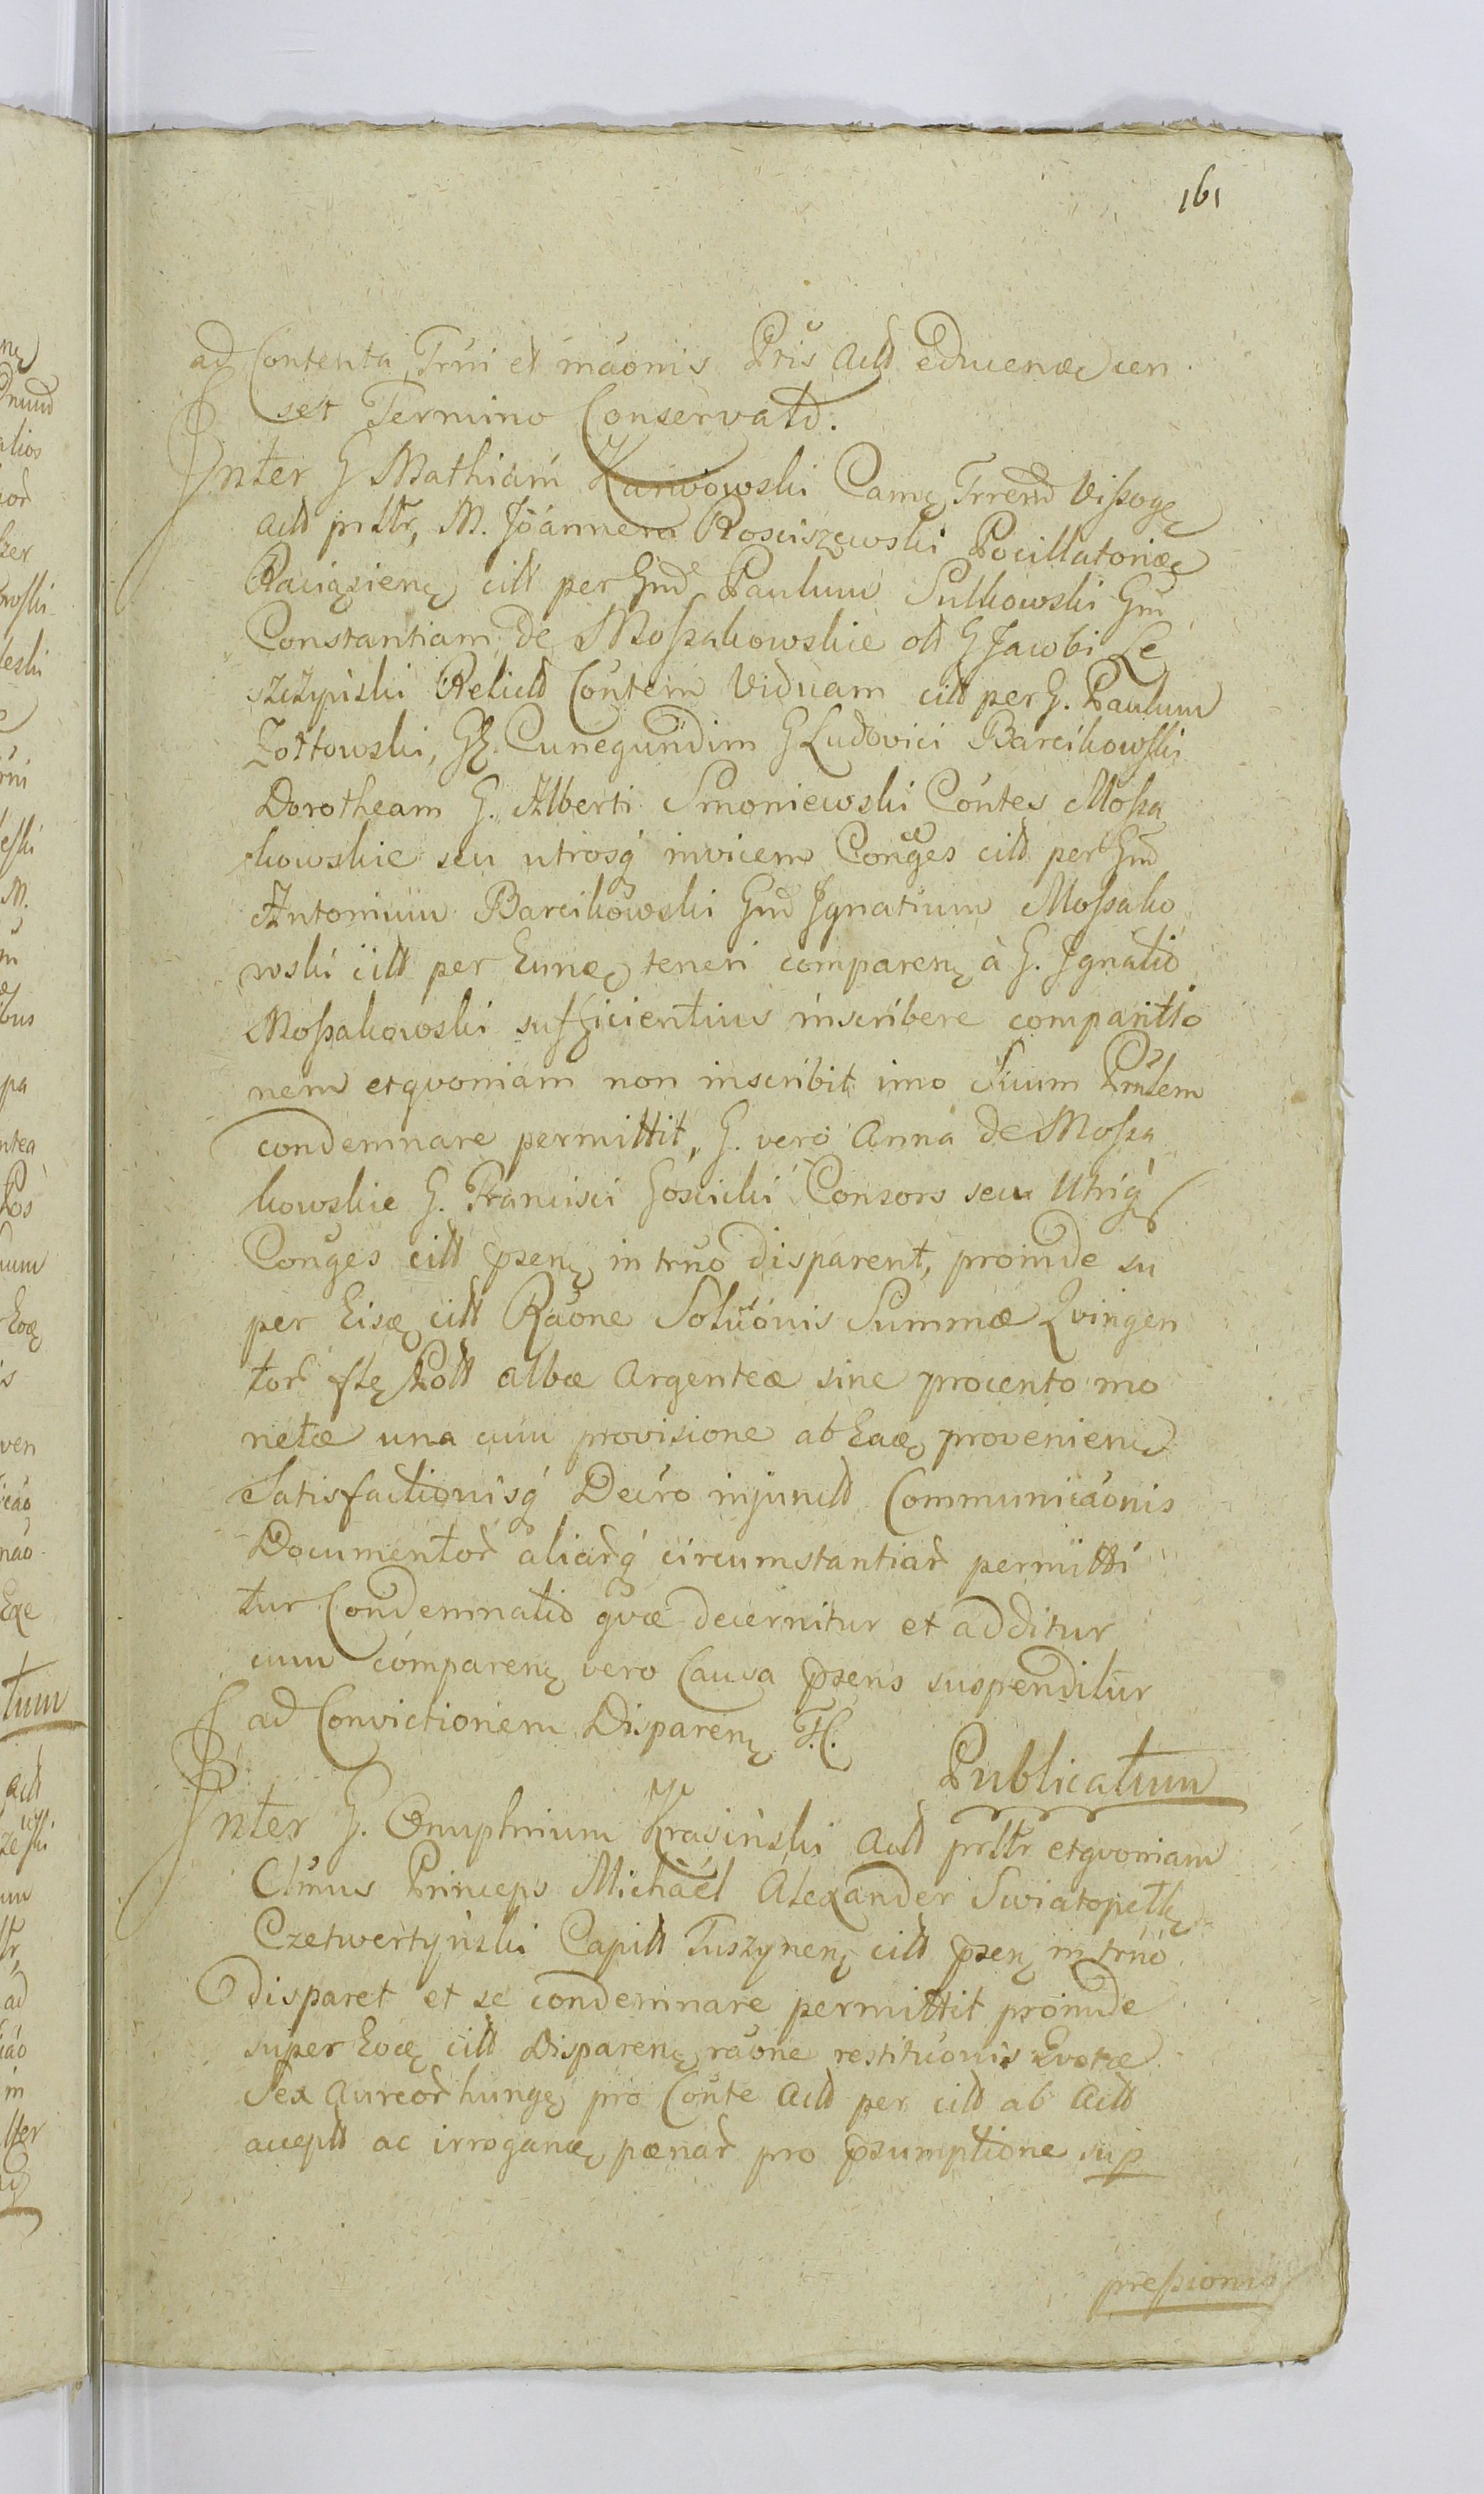 161
ad Contenta Trni et māonis Pris Actt educenæ cen
set Termino Conservatt.
Inter G Mathiam Karwowski Camę Trrend Vißogę
actt prttr, M. Joannem Rosciszewski Pocillatoriæ
Raciązienę citt per Gnd Paulum Sulkowski Gm
Constantiam de Moßakowskie ott G Jacobi Le
szczyński Relictt Contem Viduam citt per G. Paulum
Zołtowski, GG. Cunegundim G Ludovici Barcikowski
Dorotheam G. Alberti Smoniewski Contes Moßa
kowskie seu utrosq invicem Conges citt per Gnd
Antonium Barcikowski Gnd Ignatium Moßako
wski citt per Eunę teneri comparenę à G. Ignatio
Moßakowski sufficientius inscribere comparitio
nem etqvoniam non inscribit imo Suum Prnlem
condemnare permittit, G. vero Anna de Moßa
kowskie G. Francisci Gościcki Consors seu Utriq
Conges citt psenę in trno disparent, proinde su
per Eisę citt Raone Soluonis Summæ Qvingen
tor flę Poll albæ Argenteæ sine procento mo
netæ una cum provisione ab Eaę provenienę
Satisfactionisq Decro injunctt Communicaonis
Documentor aliarq circumstantiar permitti
tur Condemnatio qvæ decernitur et additur
cum comparenę vero Causa psens suspenditur
ad Convictionem Disparenę T.C.
Publicatum
Inter G. Onuphrium Krasiński Actt prttr etqvoniam
Clmus Princeps Michaël Alexander Swiatopełkę
Czetwertyński Capitt Tuszynenę citt psenę in trno
disparet et se condemnare permittit proinde
super Eoę citt Disparenę raone restituonis Qvotæ
Sex Aureor hungę pro Conte Actt per citt ab Actt
acceptt ac irroganæ, pœnar pro psumptione sup
preßionis